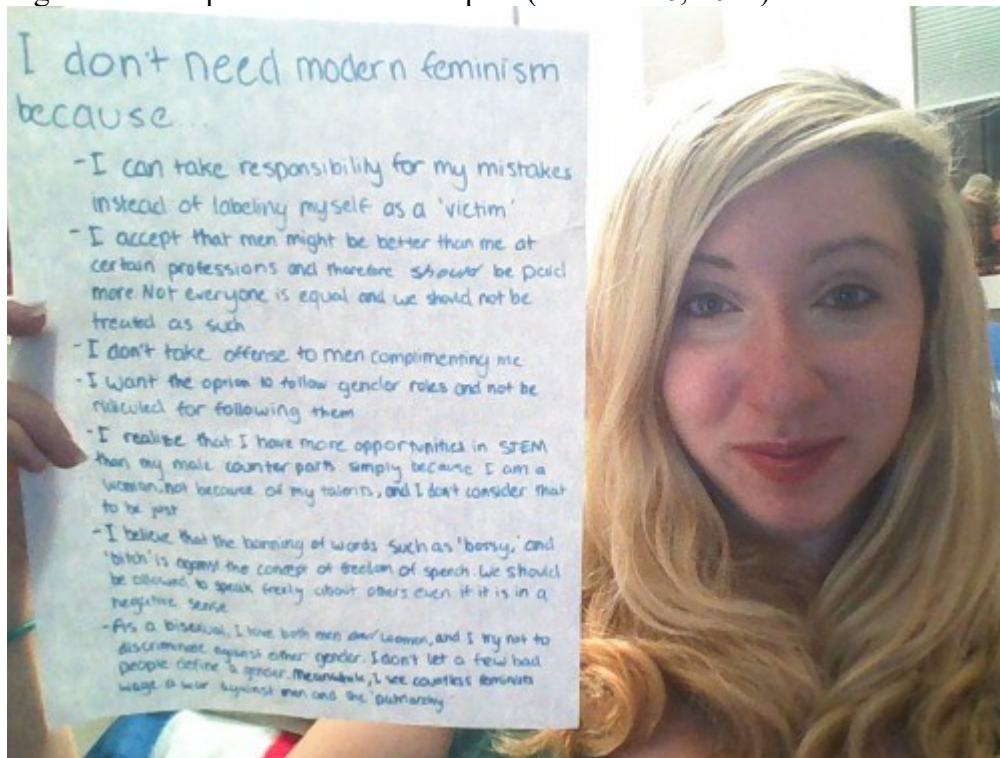 I don't need modern feminism
because...
- I can take responsibility for my mistakes
instead of labeling myself as a 'victim'
- I accept that men might be better than me at
certain professions and therefore should be paid
more. Not everyone is equal and we should not be
treated as such
- I don't take offense to men complimenting me
- I want the option to follow gender roles and not be
ridiculed for following them
- I realize that I have more opportunities in STEM
than my male counter parts simply because I am a
woman, not because of my talents, and I don't consider that
to be just
- I believe that the banning of words such as 'bossy,' and
'bitch' is against the concept of freedom of speech. We should
be allowed to speak freely about others even if it is in a
negative sense
- As a bisexual, I love both men and women, and I try not to
discriminate against either gender. I don't let a few bad
people define a gender. Meanwhile, I see countless feminists
wage a war against men and the 'patriarchy'